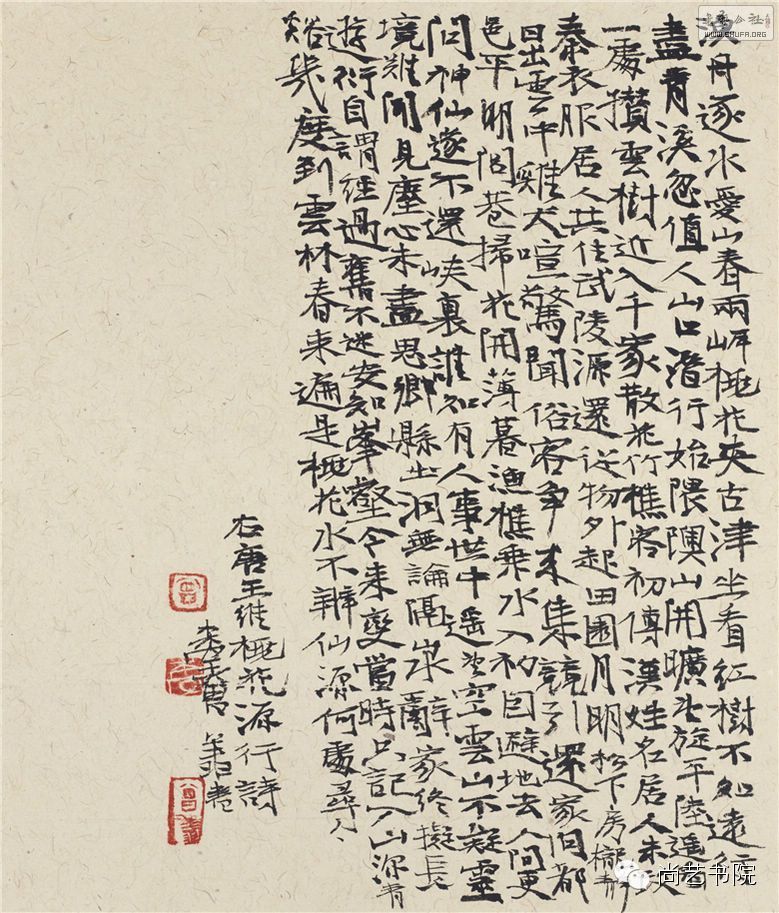 漁舟逐水愛山春兩岸桃花夾古津坐看紅樹不知遠行
盡青溪忽值人山口潛行始隈隩山開曠望旋平陸遙看
一處攢雲樹近入千家散花竹樵客初傳漢姓名居人未改
秦衣服居人共住武陵源還從物外起田園月明松下房櫳靜
日出雲中雞犬喧驚聞俗客爭來集競引還家問都
邑平明閭巷掃花開薄暮漁樵乘水入初因避地去人間更
問神仙遂不還峽裏誰知有人事世中遙望空雲山不疑靈
境難聞見塵心未盡思鄉縣出洞無論隔山水辭家終擬長
遊衍自謂經過舊不迷安知峯壑今來變當時只記入山深青
谿幾度到雲林春來遍是桃花水不辨仙源何處尋
右唐王維桃花源行詩
WWW.SHUFA.ORG
尚艺书院